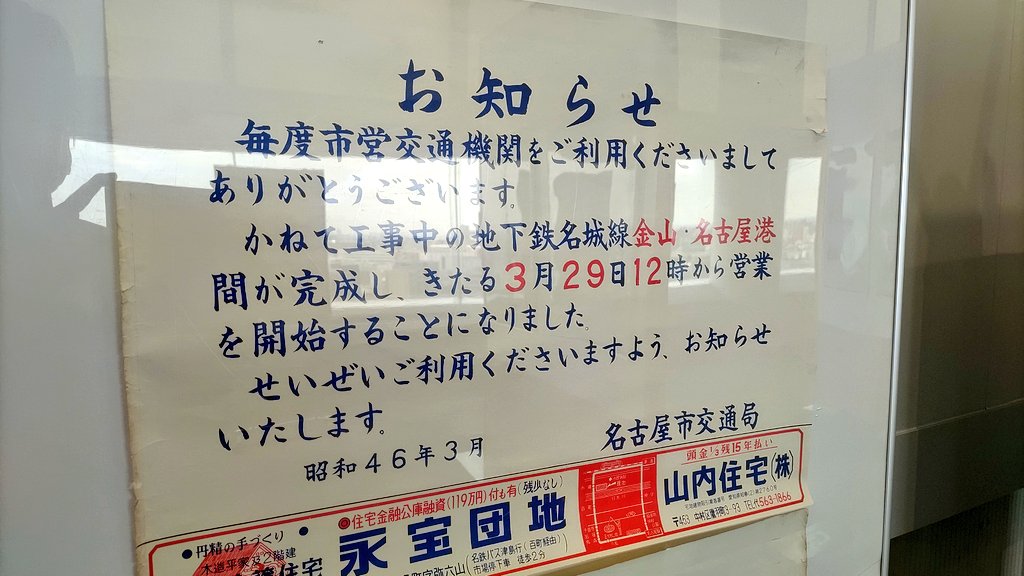 お知らせ
毎度市営交通機関をご利用くださいまして
ありがとうございます。
かねて工事中の地下鉄名城線金山・名古屋港
間が完成し、きたる3月29日12時から営業
を開始することになりました。
せいぜいご利用くださいますよう、お知らせ
いたします。
昭和46年3月
名古屋市交通局
●丹精の手づくり
木造平家
階建
住宅
◎住宅金融公庫融資(119万円)付も有(残少なし)
永宝団地
町字弥六山
名鉄バス津島行(百町経由)
市場停下車 徒歩2分
頭金1/3残15年払い
山内住宅(株)
〒453 中村区 3-93 TEL563-1866